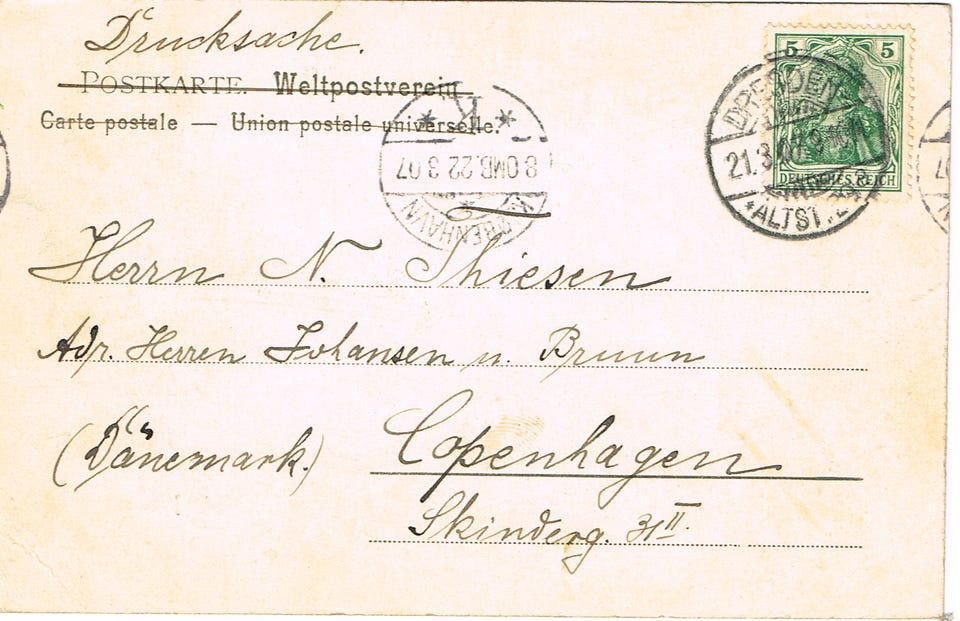 Drucksache.
POSTKARTE. Weltpostverein
Carte postale — Union postale universelle.
5 5
DEUTSCHES REICH
DRESDEN
21.3.
*ALTST.
* K *
8.OMB. 22 3 07
KJØBENHAVN
Herrn N. Thiesen
Adr. Herren Johansen u. Bruun
(Dänemark.) Copenhagen
Skinderg. 31 II.